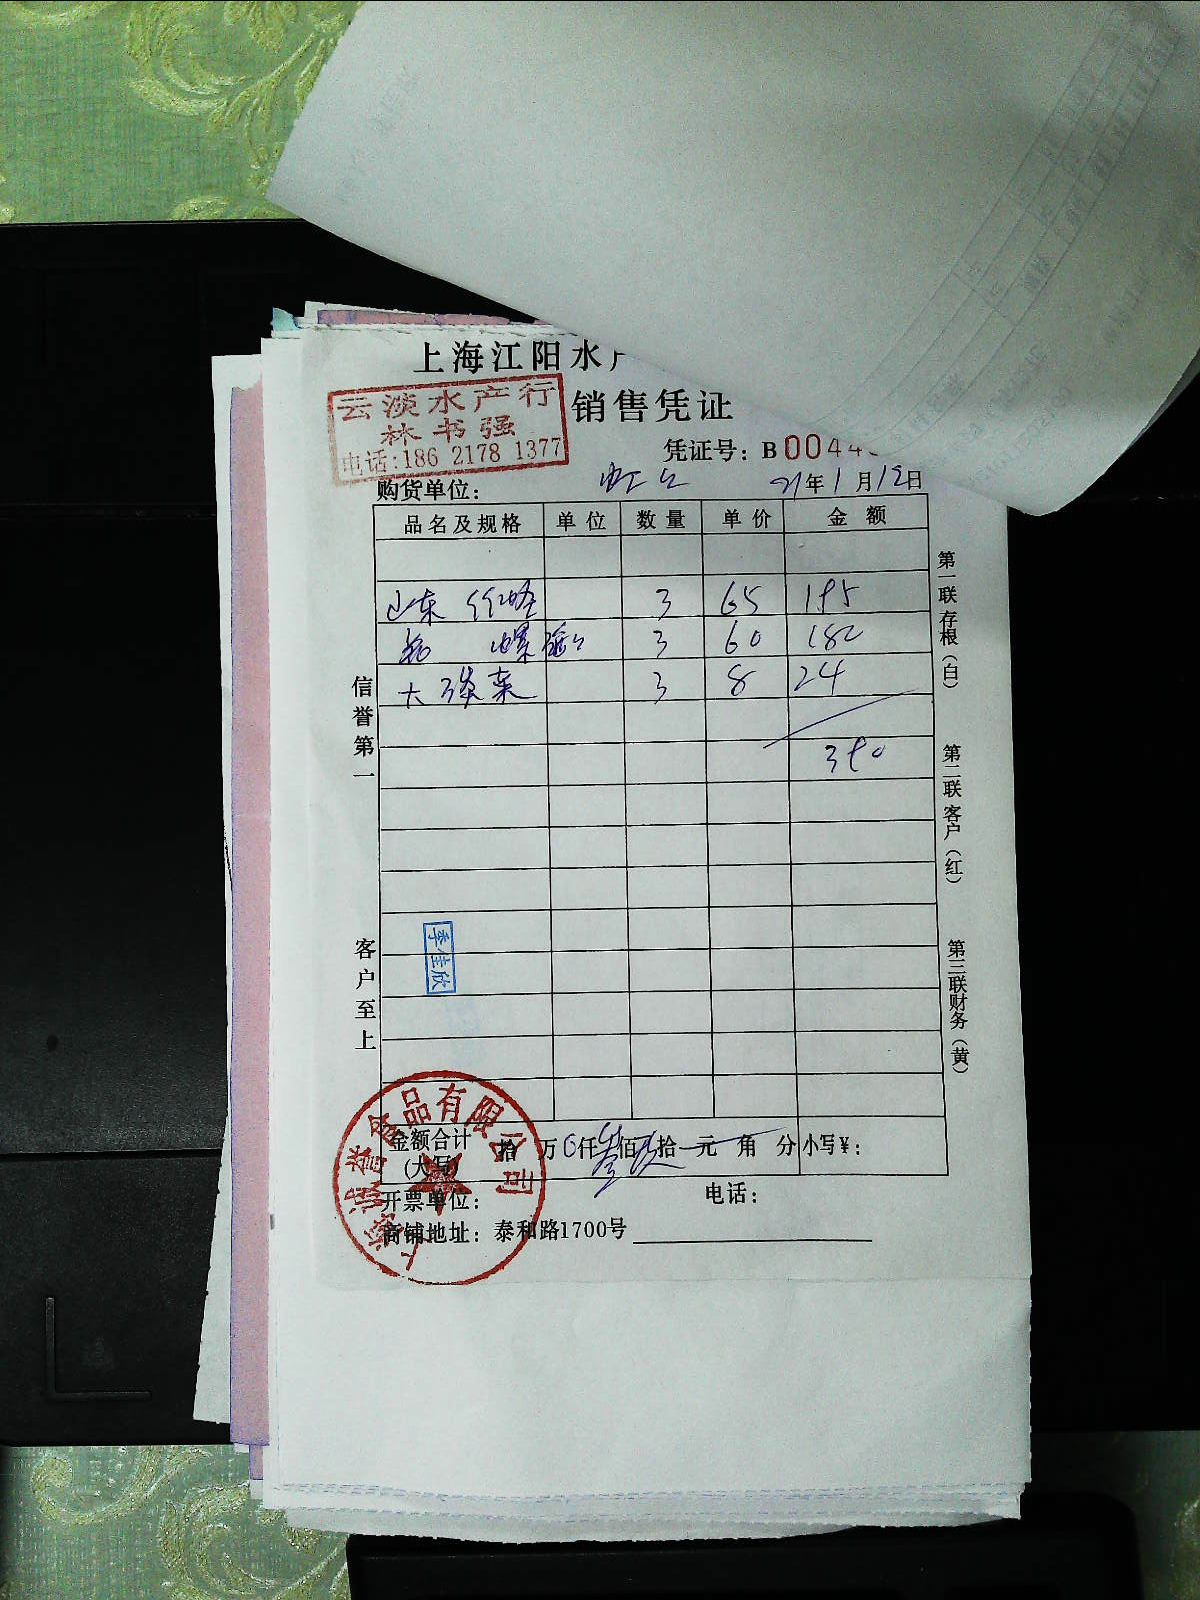 上海江阳水
云淡水产行
林书强
电话:186 2178 1377
销售凭证
凭证号: B 0044
购货单位: 虹云 21年1月12日
品名及规格 单位 数量 单价 金额
山东 3 65 195
螺 3 60 180
大 菜 3 8 24
390
信誉第一
客户至上
第一联存根(白)
第二联客户(红)
第三联财务(黄)
李佳欣
金额合计(大写) 拾 万 0仟叁佰玖拾 元 角 分 小写¥:
开票单位: 电话:
商铺地址: 泰和路1700号
上海诚誉食品有限公司